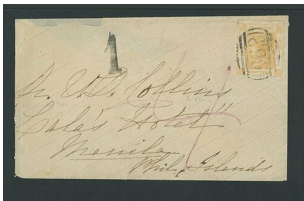 1
Mr. W. D. Collins
Cala's Hotel
Manila
Phil. Islands